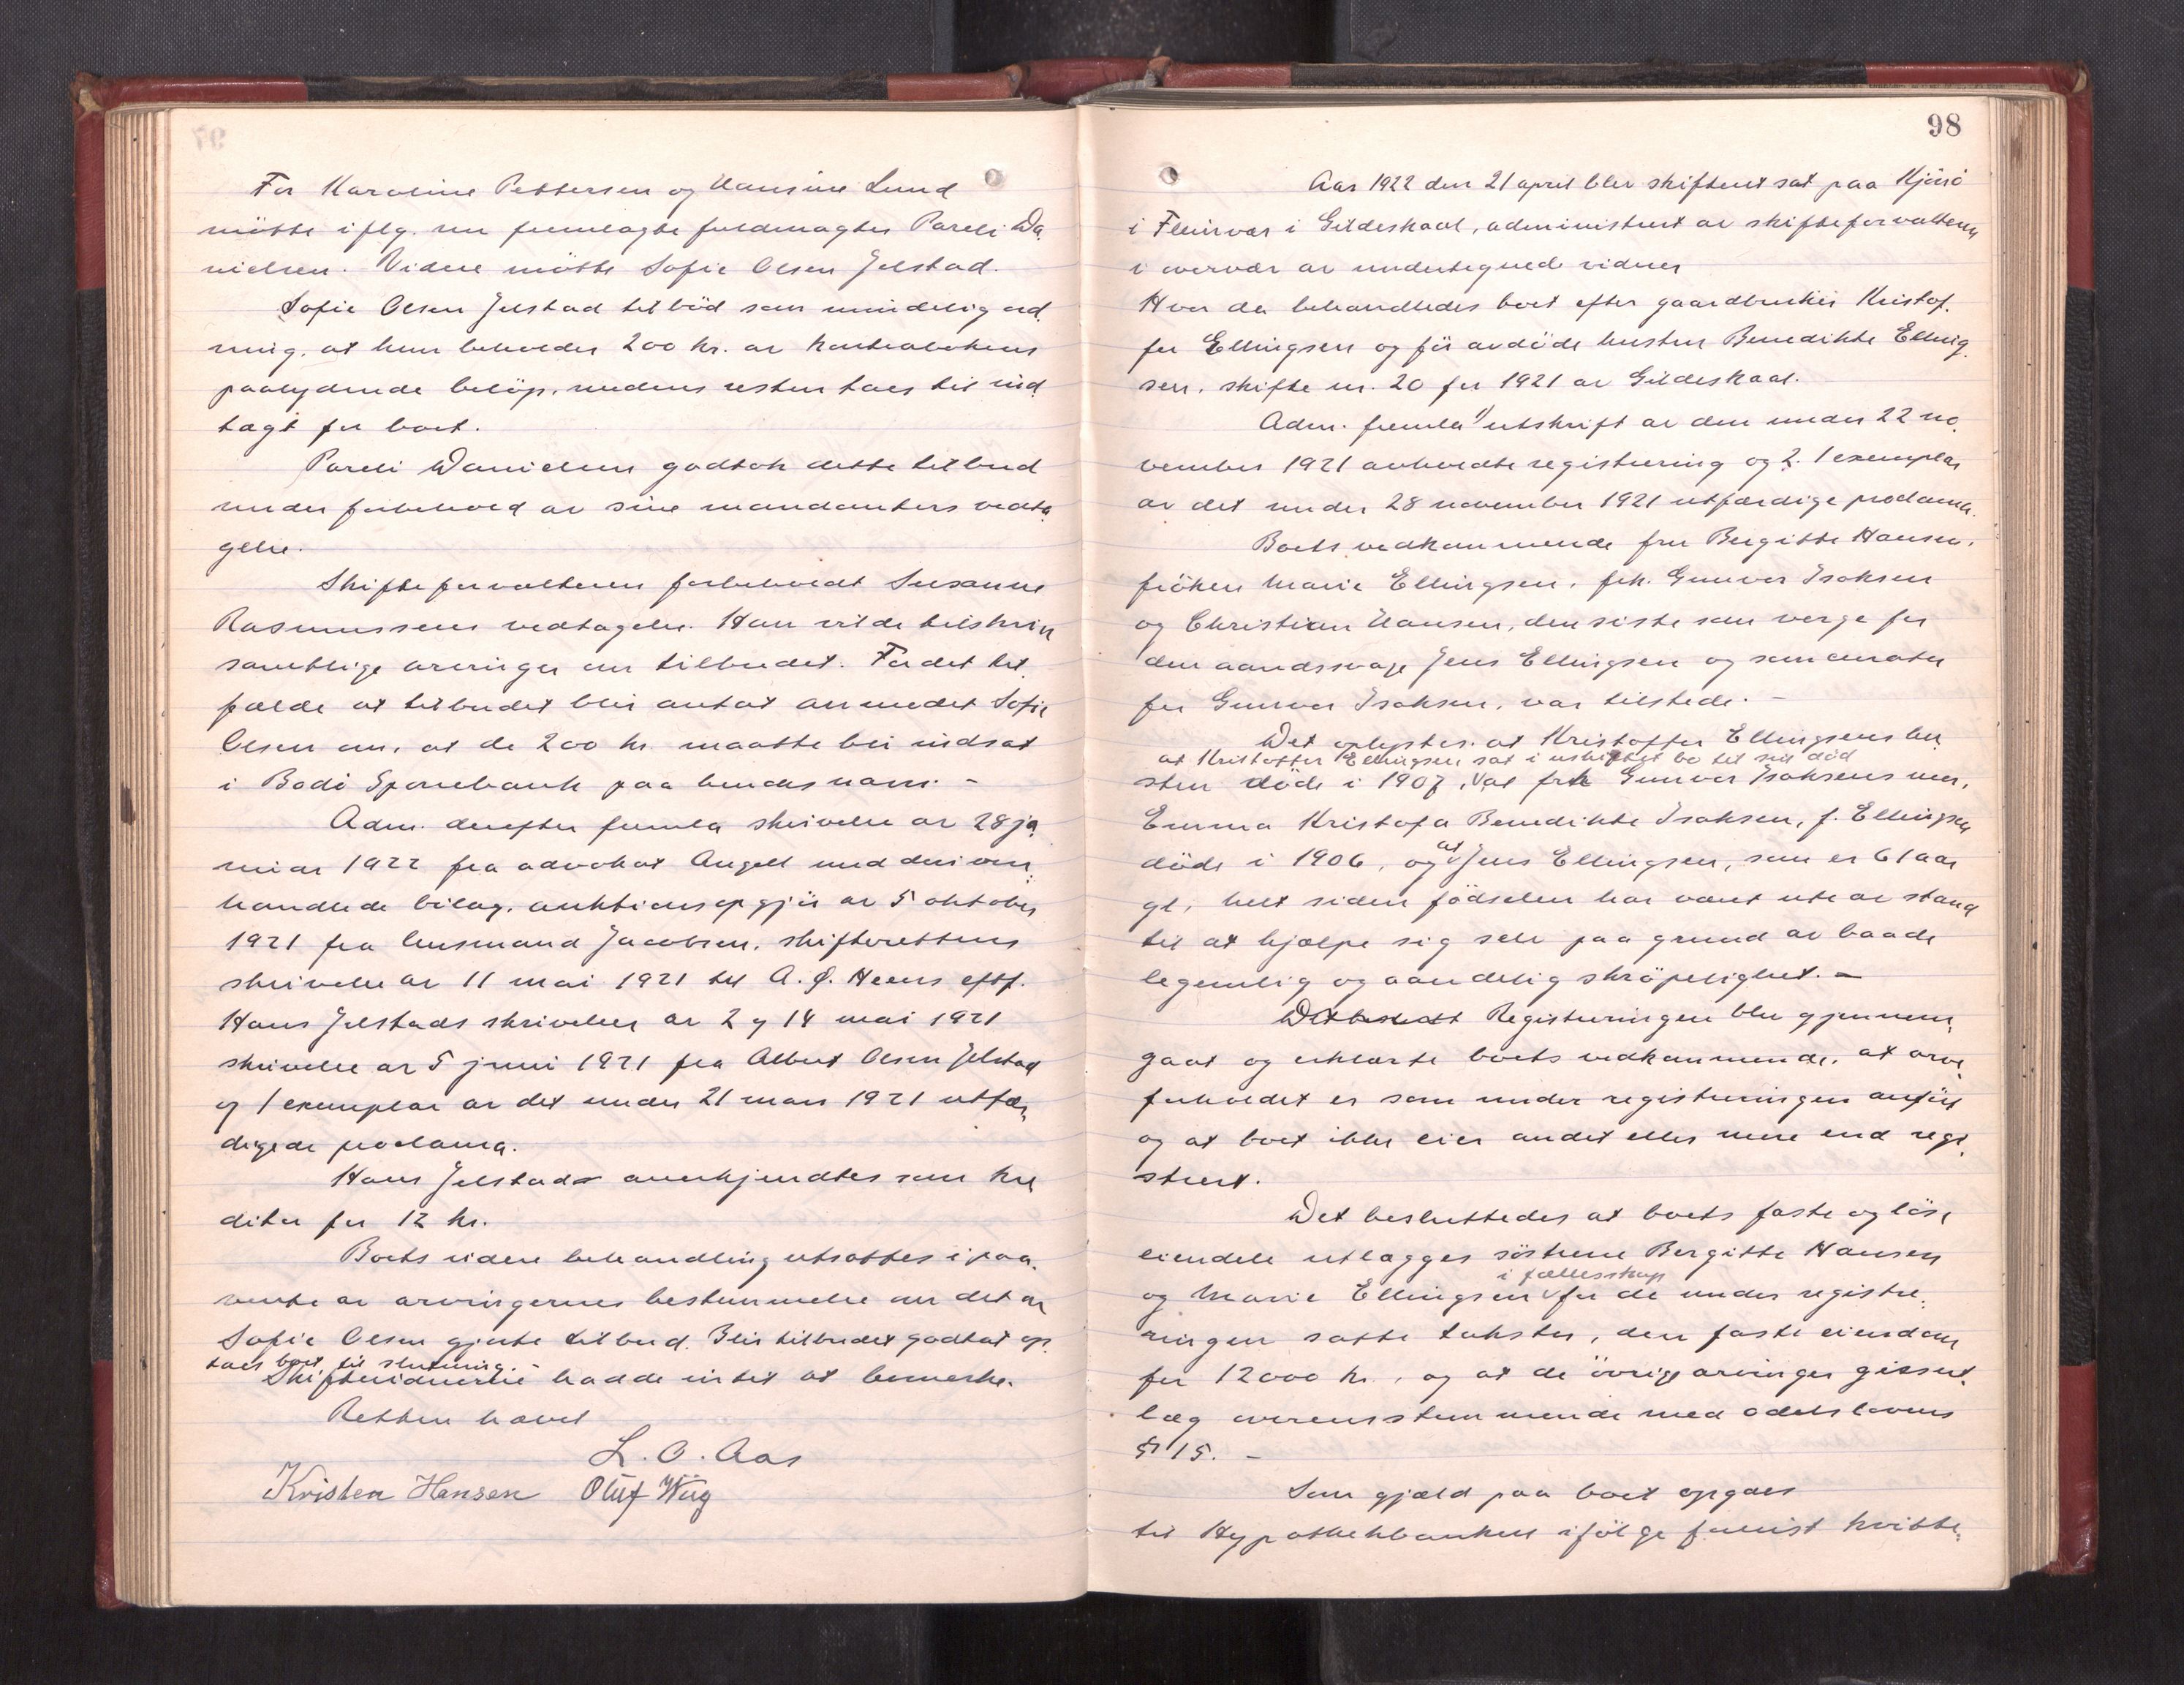 For Karoline Pettersen og Hansine Lund
mötte iflg. nu fremlagte fuldmagter Pareli Da-
nielsen. Videre mötte Sofie Olsen Jelstad.
Sofie Olsen Jelstad tilböd som mindelig ord-
ning, at hun beholder 200 kr. av kontrabokens
paalydende belöp, medens resten taes til ind-
tægt for boet.
Pareli Danielsen godtok dette tilbud
under forbehold av sine mandanters vedta-
gelse.
Skifteforvalteren forbeholdt Susanne
Rasmussens vedtagelse. Han vilde tilskrive
samtlige arvinger om tilbudet. For det til-
fælde at tilbudet blir antat anmodet Sofie
Olsen om, at de 200 kr maatte bli indsat
i Bodö Sparebank paa hendes navn. -
Adm. derefter fremla skrivelse av 28 ja-
nuar 1922 fra advokat Angell med deri om-
handlede bilag, auktionsopgjör av 5 oktober
1921 fra lensmand Jacobsen, skifterettens
skrivelse av 11 mai 1921 til A. Ø. Heens eftf.
Hans Jelstads skrivelser av 2 og 14 mai 1921
skrivelse av 5 juni 1921 fra Albert Olsen Jelstad
og 1 exemplar av det under 21 mars 1921 utfær-
digede proclama.
Hans Jelstad anerkjendtes som kre-
ditor for 12 kr.
Boets videre behandling utsattes i paa-
vente av arvingernes bestemmelse om det av
Sofie Olsen gjorte tilbud. Blir tilbudet godtat op-
taes boet til slutning. -
Skiftevidnerne hadde intet at bemerke.
Retten hævet
L. O. Aas
Kristen Hansen Oluf Wiig
98
Aar 1922 den 21 april blev skifteret sat paa Kjörsö
i Fleinvær i Gildeskaal, administrert av skifteforvalteren
i overvær av undertegnede vidner
Hvor da behandledes boet efter gaardbruker Kristof-
fer Ellingsen og för avdöde hustru Benedikte Elling-
sen, skifte nr. 20 for 1921 av Gildeskaal.
Adm. fremla 1/ utskrift av den under 22 no-
vember 1921 avholdte registrering og 2. 1 exemplar
av det under 28 november 1921 utfærdige proclama.
Boets vedkommende fru Bergitte Hansen,
fröken Marie Ellingsen, frk. Gunvor Isaksen
og Christian Hansen, den siste som verge for
den aandssvage Jens Ellingsen og som curator
for Gunvor Isaksen, var tilstede. -
Det oplystes, at Kristoffer Ellingsens hu-
at Kristoffer Ellingsen sat i uskiftet bo til sin död
stru döde i 1907, at frk Gunvor Isaksens mor,
Emma Kristofa Benedikte Isaksen, f. Ellingsen
döde i 1906, og at Jens Ellingsen, som er 61 aar
gl, helt siden födselen har været ute av stand
til at hjælpe sig selv paa grund av baade
legemlig og aandelig skröpelighet. -
Registreringen blev gjennem-
gaat og erklærte boets vedkommende, at arve-
forholdet er som under registreringen anfört
og at boet ikke eier andet eller mere end regi-
strert.
Det besluttedes at boets faste og löse
eiendele utlægges söstrene Bergitte Hansen
i fællesskap
og Marie Ellingsen for de under registre-
ringen satte takster, den faste eiendom
for 12000 kr., og at de övrige arvinger gives ut-
læg overensstemmende med odelslovens
§ 15. -
Som gjæld paa boet opgaes
til Hypothekbanken ifölge forevist kvitte-